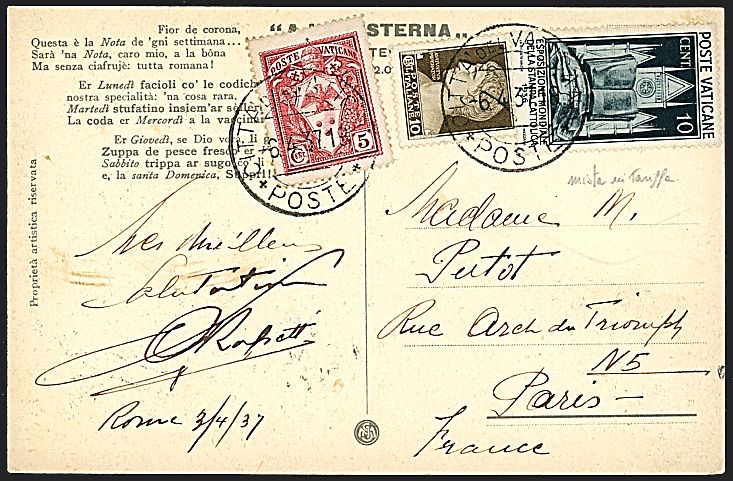 Fior de corona,
Questa è la Nota de 'gni settimana...
Sarà 'na Nota, caro mio, a la bôna
Ma senza ciafrujè: tutta romana!
Er Lunedì facioli co' le codich
nostra specialità: 'na cosa rara.
Martedì stufatino insiem'ar sel
La coda er Mercordì a la vaccin
Er Giovedì, se Dio vo
Zuppa de pesce fresco e
Sabbito trippa ar sugo
e, la santa Domenica,
STERNA
POSTE VATICANE
5
POSTE ITALIANE
10
ESPOSIZIONE MONDIALE
DELLA STAMPA CATTOLICA
1936
CENT.
10
POSTE VATICANE
POSTE
POSTE
mista in tariffa
Proprietà artistica riservata
Salutati
Rome 3/4/37
Madame M.
Pertot
Rue Arch du Triomph
N5
Paris —
France